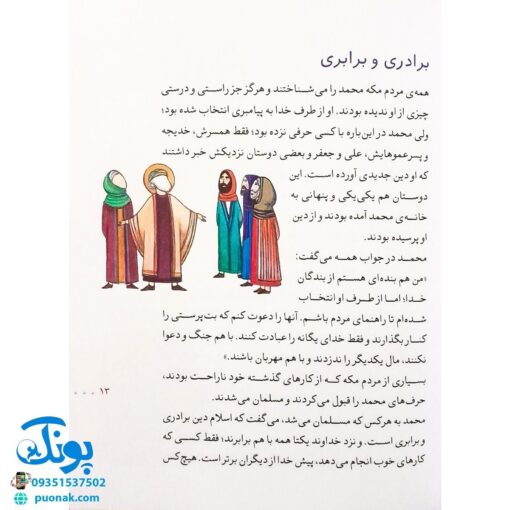 برادری و برابری
همه‌ی مردم مکه محمد را می‌شناختند و هرگز جز راستی و درستی
چیزی از او ندیده بودند. او از طرف خدا به پیامبری انتخاب شده بود؛
ولی محمد در این‌باره با کسی حرفی نزده بود؛ فقط همسرش، خدیجه
و پسرعموهایش، علی و جعفر و بعضی دوستان نزدیکش خبر داشتند
که او دین جدیدی آورده است. این
دوستان هم یکی‌یکی و پنهانی به
خانه‌ی محمد آمده بودند و از دین
او پرسیده بودند.
محمد در جواب همه می‌گفت:
«من هم بنده‌ای هستم از بندگان
خدا؛ اما از طرف او انتخاب
شده‌ام تا راهنمای مردم باشم. آنها را دعوت کنم که بت‌پرستی را
کنار بگذارند و فقط خدای یگانه را عبادت کنند. با هم جنگ و دعوا
نکنند، مال یکدیگر را ندزدند و با هم مهربان باشند.»
بسیاری از مردم مکه که از کارهای گذشته خود ناراحت بودند،
حرف‌های محمد را قبول می‌کردند و مسلمان می‌شدند.
۱۳
محمد به هرکس که مسلمان می‌شد، می‌گفت که اسلام دین برادری
و برابری است. و نزد خداوند یکتا همه با هم برابرند؛ فقط کسی که
کارهای خوب انجام می‌دهد، پیش خدا از دیگران برتر است. هیچ‌کس
پونک
09351537502
puonak.com